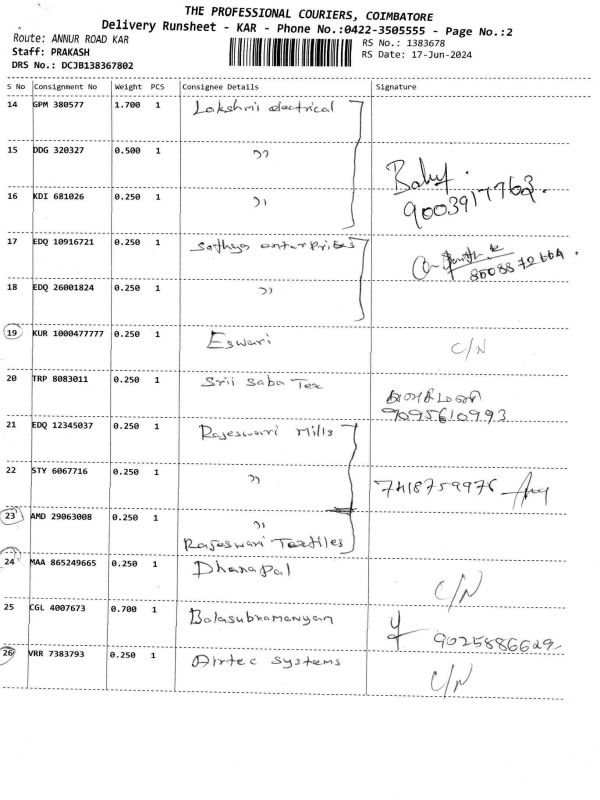 THE PROFESSIONAL COURIERS, COIMBATORE
Delivery Runsheet - KAR - Phone No.:0422-3505555 - Page No.:2
Route: ANNUR ROAD KAR
RS No.: 1383678
Staff: PRAKASH
RS Date: 17-Jun-2024
DRS No.: DCJB138367802
S No Consignment No Weight PCS Consignee Details Signature
14 GPM 380577 1.700 1 Lakshmi electrical
15 DDG 320327 0.500 1 ,,
16 KDI 681026 0.250 1 ,,
9003917763.
17 EDQ 10916721 0.250 1 Sathya enterprises
18 EDQ 26001824 0.250 1 ,,
19 KUR 1000477777 0.250 1 Eswari C/N
20 TRP 8083011 0.250 1 Srii Saba Tex
9095610993
21 EDQ 12345037 0.250 1 Rajeswari Mills
22 STY 6067716 0.250 1 ,, 7418759976
23 AMD 29063008 0.250 1 ,,
Rajeswari Textiles
24 MAA 865249665 0.250 1 Dhanapal C/N
25 CGL 4007673 0.700 1 Balasubramanyan 9025886629
26 VRR 7383793 0.250 1 Airtec Systems C/N